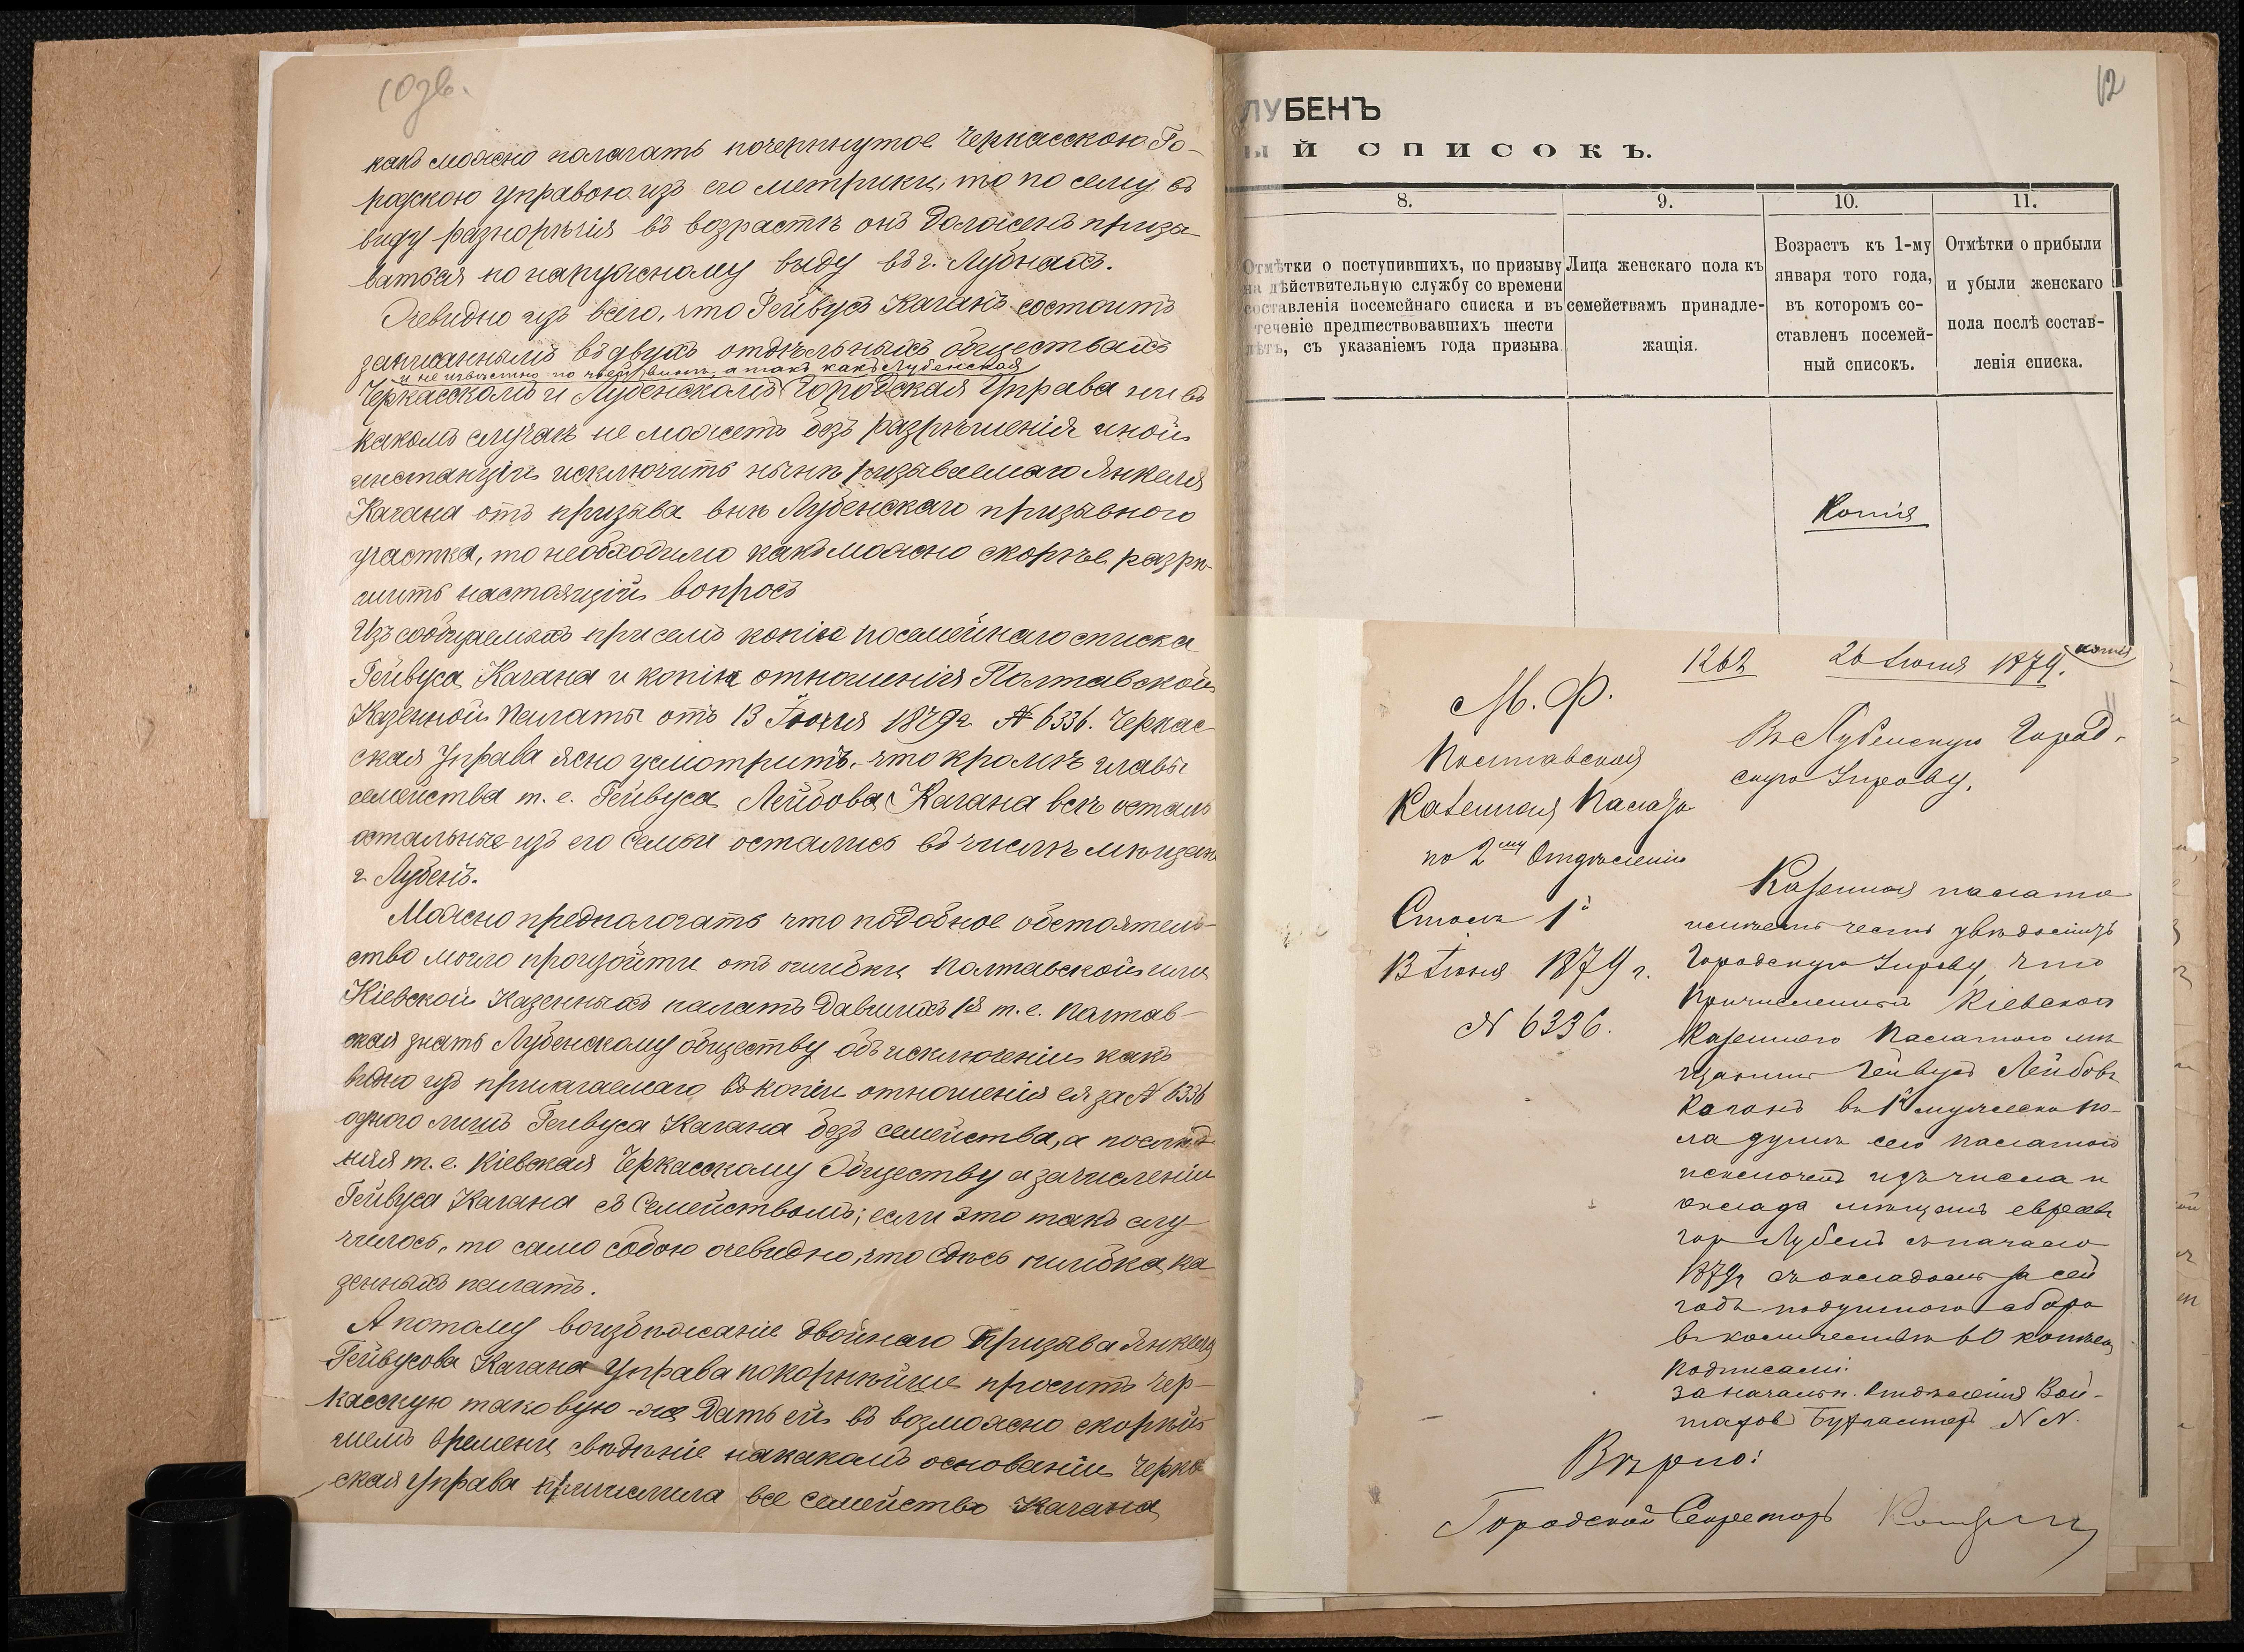 10 зв.
какъ можно полагать почерпнутое Черкасскою Го-
родскою Управою изъ его метрики, то по сему въ
виду разноречія въ возрасте онъ долженъ призы
ваться по наружному виду въ г. Лубнахъ.
Очевидно изъ всего, что Гейвусъ Каганъ состоитъ
записаннымъ въ двухъ отдѣльныхъ обществахъ
и не извѣстно по чьей винѣ, а такъ какъ Лубенская
Черкасскомъ и Лубенскомъ Городская Управа ни въ
какомъ случаѣ не можетъ безъ разрѣшенія иной
инстанціи исключить нынѣ призываемаго Янкеля
Кагана отъ призыва внѣ Лубенскаго призывного
участка, то необходимо какъ можно скорѣе разрѣ-
шить настоящій вопросъ
Изъ сообщаемыхъ при семъ копіи посемейнаго списка
Гейвуса Кагана и копіи отношенія Полтавской
Казенной Палаты отъ 13 Іюня 1879 г. № 6336. Черкас-
ская Управа ясно усмотритъ, что кромѣ главы
семейства т. е. Гейвуса Лейбова Кагана всѣ осталь
остальные изъ его семьи остались въ числѣ мѣщанъ
г. Лубенъ.
Можно предполагать что подобное обстоятель-
ство могло произойти отъ ошибки Полтавской или
Кіевской Казенныхъ палатъ давшихъ 1я т. е. Полтав-
ская знать Лубенскому обществу объ исключеніи какъ
видно изъ прилагаемаго въ копіи отношенія ея за № 6336
одного лишь Гейвуса Кагана безъ семейства, а послѣд-
няя т. е. Кіевская Черкасскому Обществу о зачисленіи
Гейвуса Кагана съ Семействомъ; если это такъ слу-
чилось, то само собою очевидно, что здѣсь ошибка ка
зенныхъ палатъ.
А потому воизбѣжаніе двойнаго призыва Янкеля
Гейвусова Кагана Управа покорнѣйше проситъ Чер-
касскую таковую-же дать ей въ возможно скорѣй
шемъ времени свѣдѣніе на какомъ основаніи Черка
ская Управа причислила все семейство Кагана
12
ЛУБЕНЪ
ый списокъ.
8. 9. 10. 11.
Отмѣтки о поступившихъ, по призыву
на дѣйствительную службу со времени
составленія посемейнаго списка и въ
теченіе предшествовавшихъ шести
лѣтъ, съ указаніемъ года призыва.
Лица женскаго пола къ
семействамъ принадле-
жащія.
Возрастъ къ 1-му
января того года,
въ которомъ со-
ставленъ посемей-
ный списокъ.
Отмѣтки о прибыли
и убыли женскаго
пола послѣ состав-
ленія списка.
Копія
копія
1262 26 Іюня 1879.
М. Ф.
Полтавская
Казенная Палата
по 2му Отдѣленію
Столъ 1й
13 Іюня 1879 г.
№ 6336.
Въ Лубенскую Город-
скую Управу.
Казенная палата
имѣетъ честь увѣдомить
Городскую Управу, что
причисленный Кіевской
Казенною Палатою мѣ-
щанинъ Гейвусъ Лейбовъ
Каганъ въ 1й мужеска по-
ла душѣ сею палатою
исключенъ изъ числа и
оклада мѣщанъ евреевъ
гор Лубенъ съ начала
1879 г съ окладомъ за сей
годъ подушнаго сбора
въ количествѣ 60 копѣекъ
Подписали:
за начальн. Отдѣленія Вой-
Бухгалтеръ NN.
Вѣрно:
Городской Секретарь